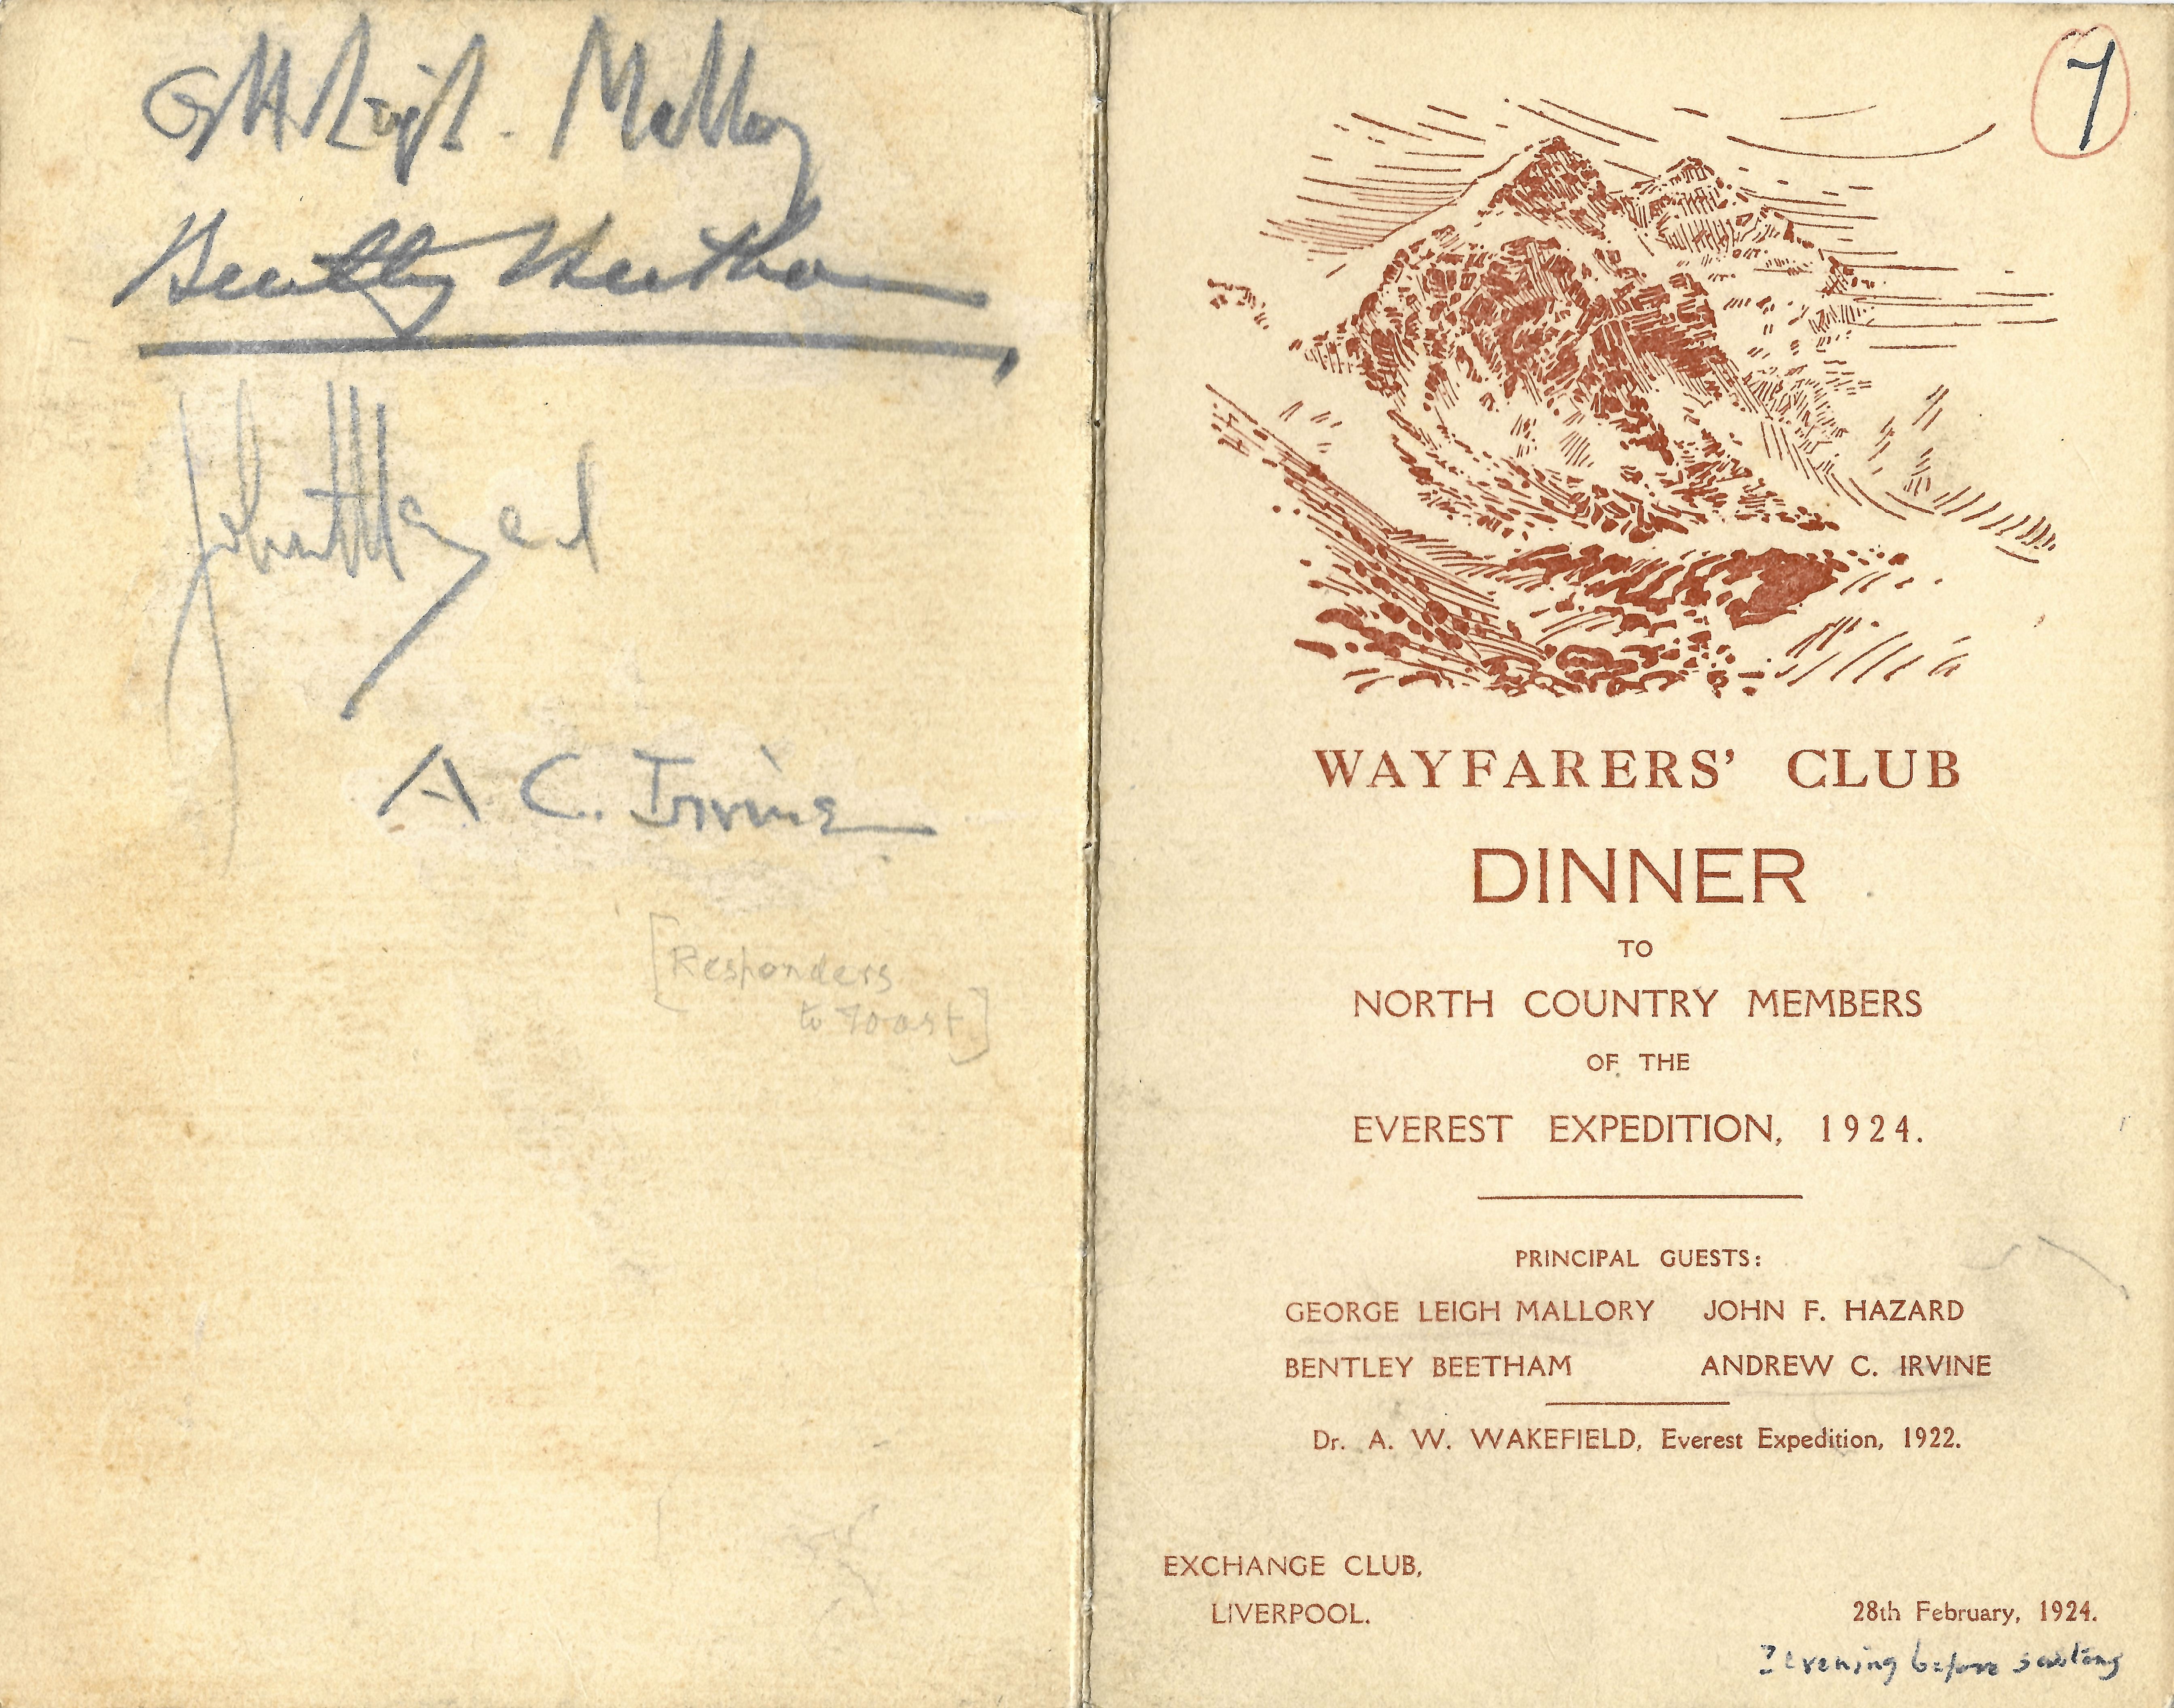 G H Leigh-Mallory
Bentley Beetham
John Hazard
A C. Irvine
[Responders
to Toast]
7
WAYFARERS' CLUB
DINNER
TO
NORTH COUNTRY MEMBERS
OF THE
EVEREST EXPEDITION, 1924.
PRINCIPAL GUESTS:
GEORGE LEIGH MALLORY JOHN F. HAZARD
BENTLEY BEETHAM ANDREW C. IRVINE
Dr. A. W. WAKEFIELD, Everest Expedition, 1922.
EXCHANGE CLUB,
LIVERPOOL.
28th February, 1924.
? Evening before sailing